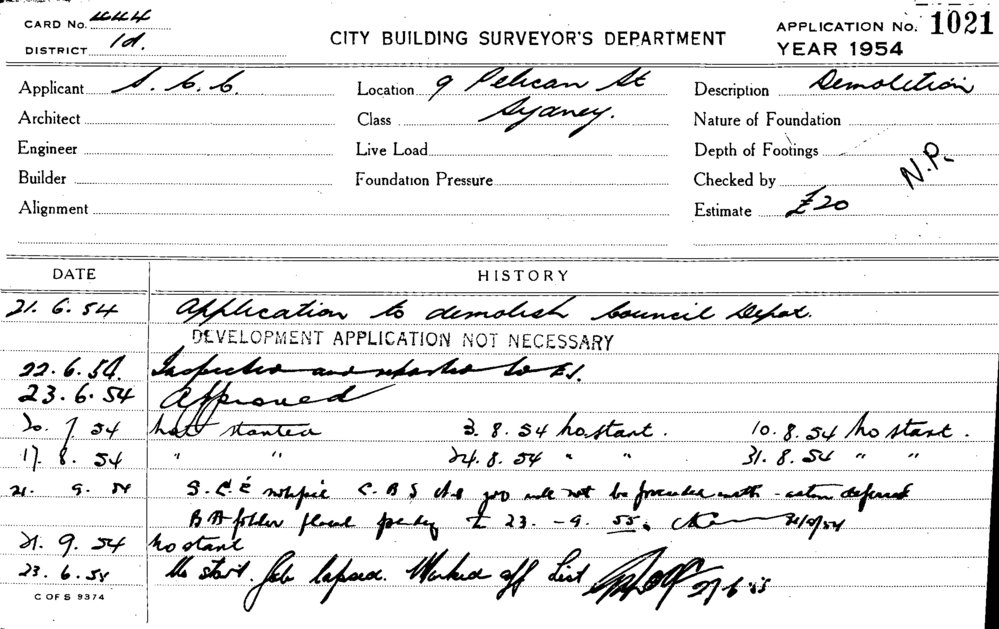 CARD No. 444
DISTRICT 1d.
CITY BUILDING SURVEYOR'S DEPARTMENT
APPLICATION No. 1021
YEAR 1954
Applicant S. C. C. Location 9 Pelican St Description Demolition
Architect Class Sydney. Nature of Foundation
Engineer Live Load Depth of Footings
Builder Foundation Pressure Checked by N.P.
Alignment Estimate £20
DATE HISTORY
21. 6. 54 Application to demolish Council Depot.
DEVELOPMENT APPLICATION NOT NECESSARY
22.6.54. Inspected and reported to
23.6.54 Approved
20. 7 54 Not started 3. 8. 54 No start. 10. 8. 54 No start.
17. 8. 54 " " 24. 8. 54 " " 31. 8. 54 " "
21. 9. 54 S.C.E C.B.S job will not be proceeded with - action deferred
BA folder placed 23. -9. 55.
21. 9. 54 No start
23. 6. 55 No start. Job lapsed. Marked off List 27/6/55
C OF S 9374